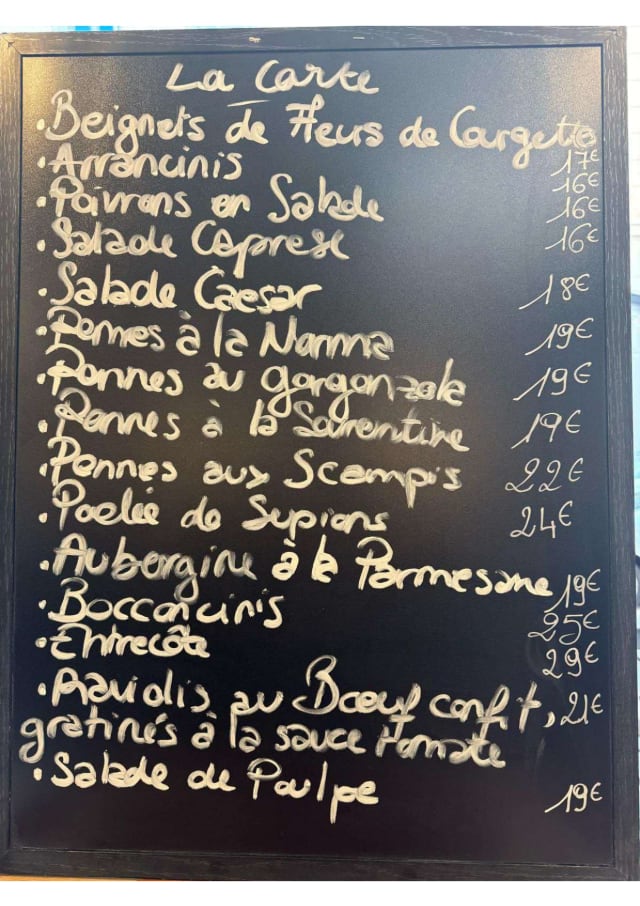 La Carte
• Beignets de Fleurs de Courgette 17€
• Arrancinis 16€
• Poivrons en Salade 16€
• Salade Caprese 16€
• Salade Caesar 18€
• Pennes à la Norma 19€
• Pennes au gorgonzola 19€
• Pennes à la Sorrentine 19€
• Pennes aux Scampis 22€
• Poelée de Supions 24€
• Aubergine à la Parmesane 19€
• Bocconcinis 25€
• Entrecôte 29€
• Raviolis au Bœuf confit, 21€
gratinés à la sauce tomate
• Salade de Poulpe 19€